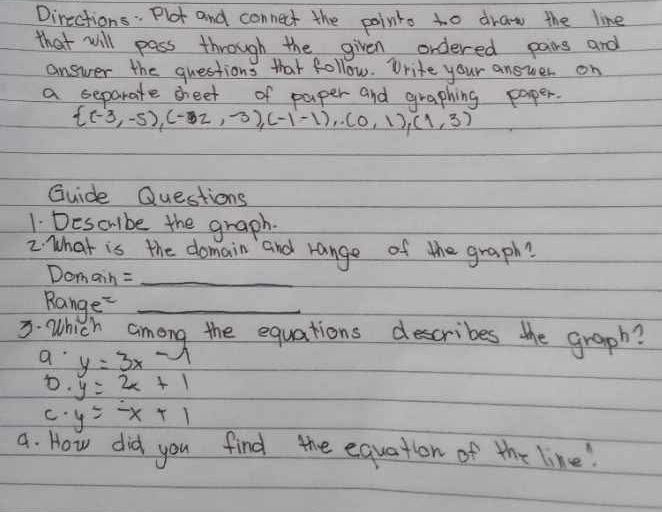 Directions: Plot and connect the points to draw the line
that will pass through the given ordered pairs and
answer the questions that follow. Write your answer on
a separate sheet of paper and graphing paper.
{(-3,-5),(-2,-3),(-1-1),(0,1),(1,3)
Guide Questions
1. Describe the graph.
2. What is the domain and range of the graph?
Domain = ____________
Range = ____________
3. Which among the equations describes the graph?
a. y = 3x - 1
b. y = 2x + 1
c. y = -x + 1
9. How did you find the equation of the line?